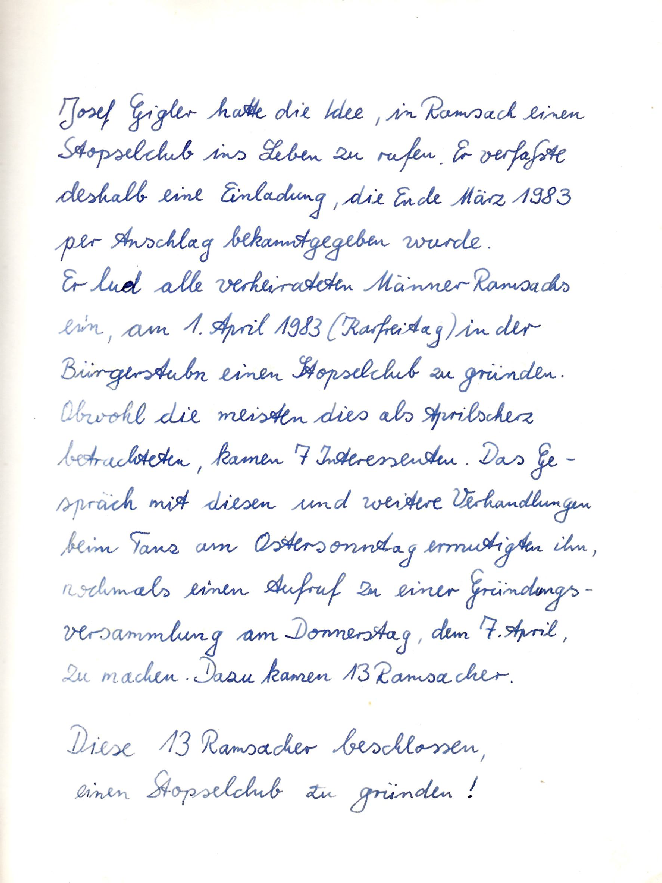 Josef Gigler hatte die Idee, in Ramsach einen
Stopselclub ins Leben zu rufen. Er verfaßte
deshalb eine Einladung, die Ende März 1983
per Anschlag bekanntgegeben wurde.
Er lud alle verheirateten Männer Ramsachs
ein, am 1. April 1983 (Karfreitag) in der
Bürgerstubn einen Stopselclub zu gründen.
Obwohl die meisten dies als Aprilscherz
betrachteten, kamen 7 Interessenten. Das Ge-
spräch mit diesen und weitere Verhandlungen
beim Tanz am Ostersonntag ermutigten ihn,
nochmals einen Aufruf zu einer Gründungs-
versammlung am Donnerstag, dem 7. April,
zu machen. Dazu kamen 13 Ramsacher.
Diese 13 Ramsacher beschlossen,
einen Stopselclub zu gründen!